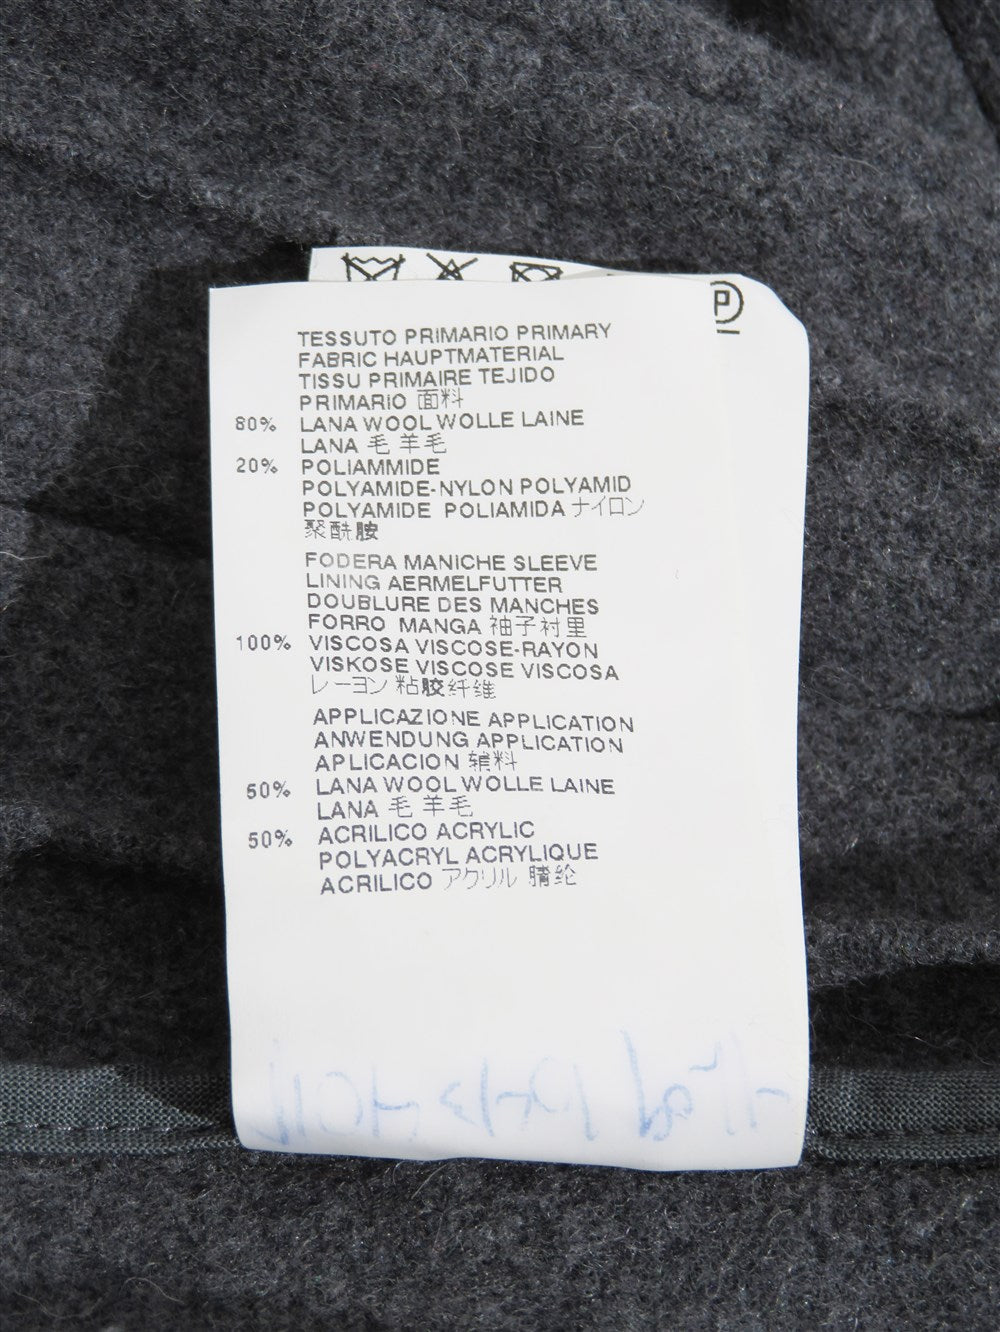 P
TESSUTO PRIMARIO PRIMARY
FABRIC HAUPTMATERIAL
TISSU PRIMAIRE TEJIDO
PRIMARIO 面料
80% LANA WOOL WOLLE LAINE
LANA 毛 羊毛
20% POLIAMMIDE
POLYAMIDE-NYLON POLYAMID
POLYAMIDE POLIAMIDA ナイロン
聚酰胺
FODERA MANICHE SLEEVE
LINING AERMELFUTTER
DOUBLURE DES MANCHES
FORRO MANGA 袖子衬里
100% VISCOSA VISCOSE-RAYON
VISKOSE VISCOSE VISCOSA
レーヨン 粘胶纤维
APPLICAZIONE APPLICATION
ANWENDUNG APPLICATION
APLICACION 辅料
50% LANA WOOL WOLLE LAINE
LANA 毛 羊毛
50% ACRILICO ACRYLIC
POLYACRYL ACRYLIQUE
ACRILICO アクリル 腈纶